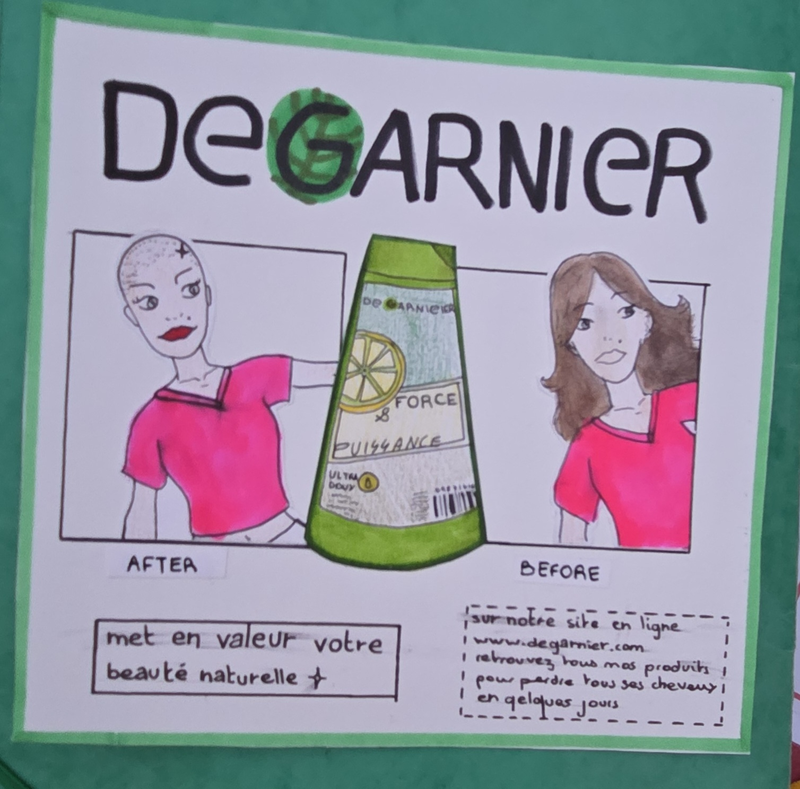 DeGARNIER
De GARNIER
FORCE
&
PUISSANCE
ULTRA
DOUX
AFTER
BEFORE
met en valeur votre
beauté naturelle
sur notre site en ligne
www.degarnier.com
retrouvez tous nos produits
pour perdre tous ses cheveux
en qelques jours